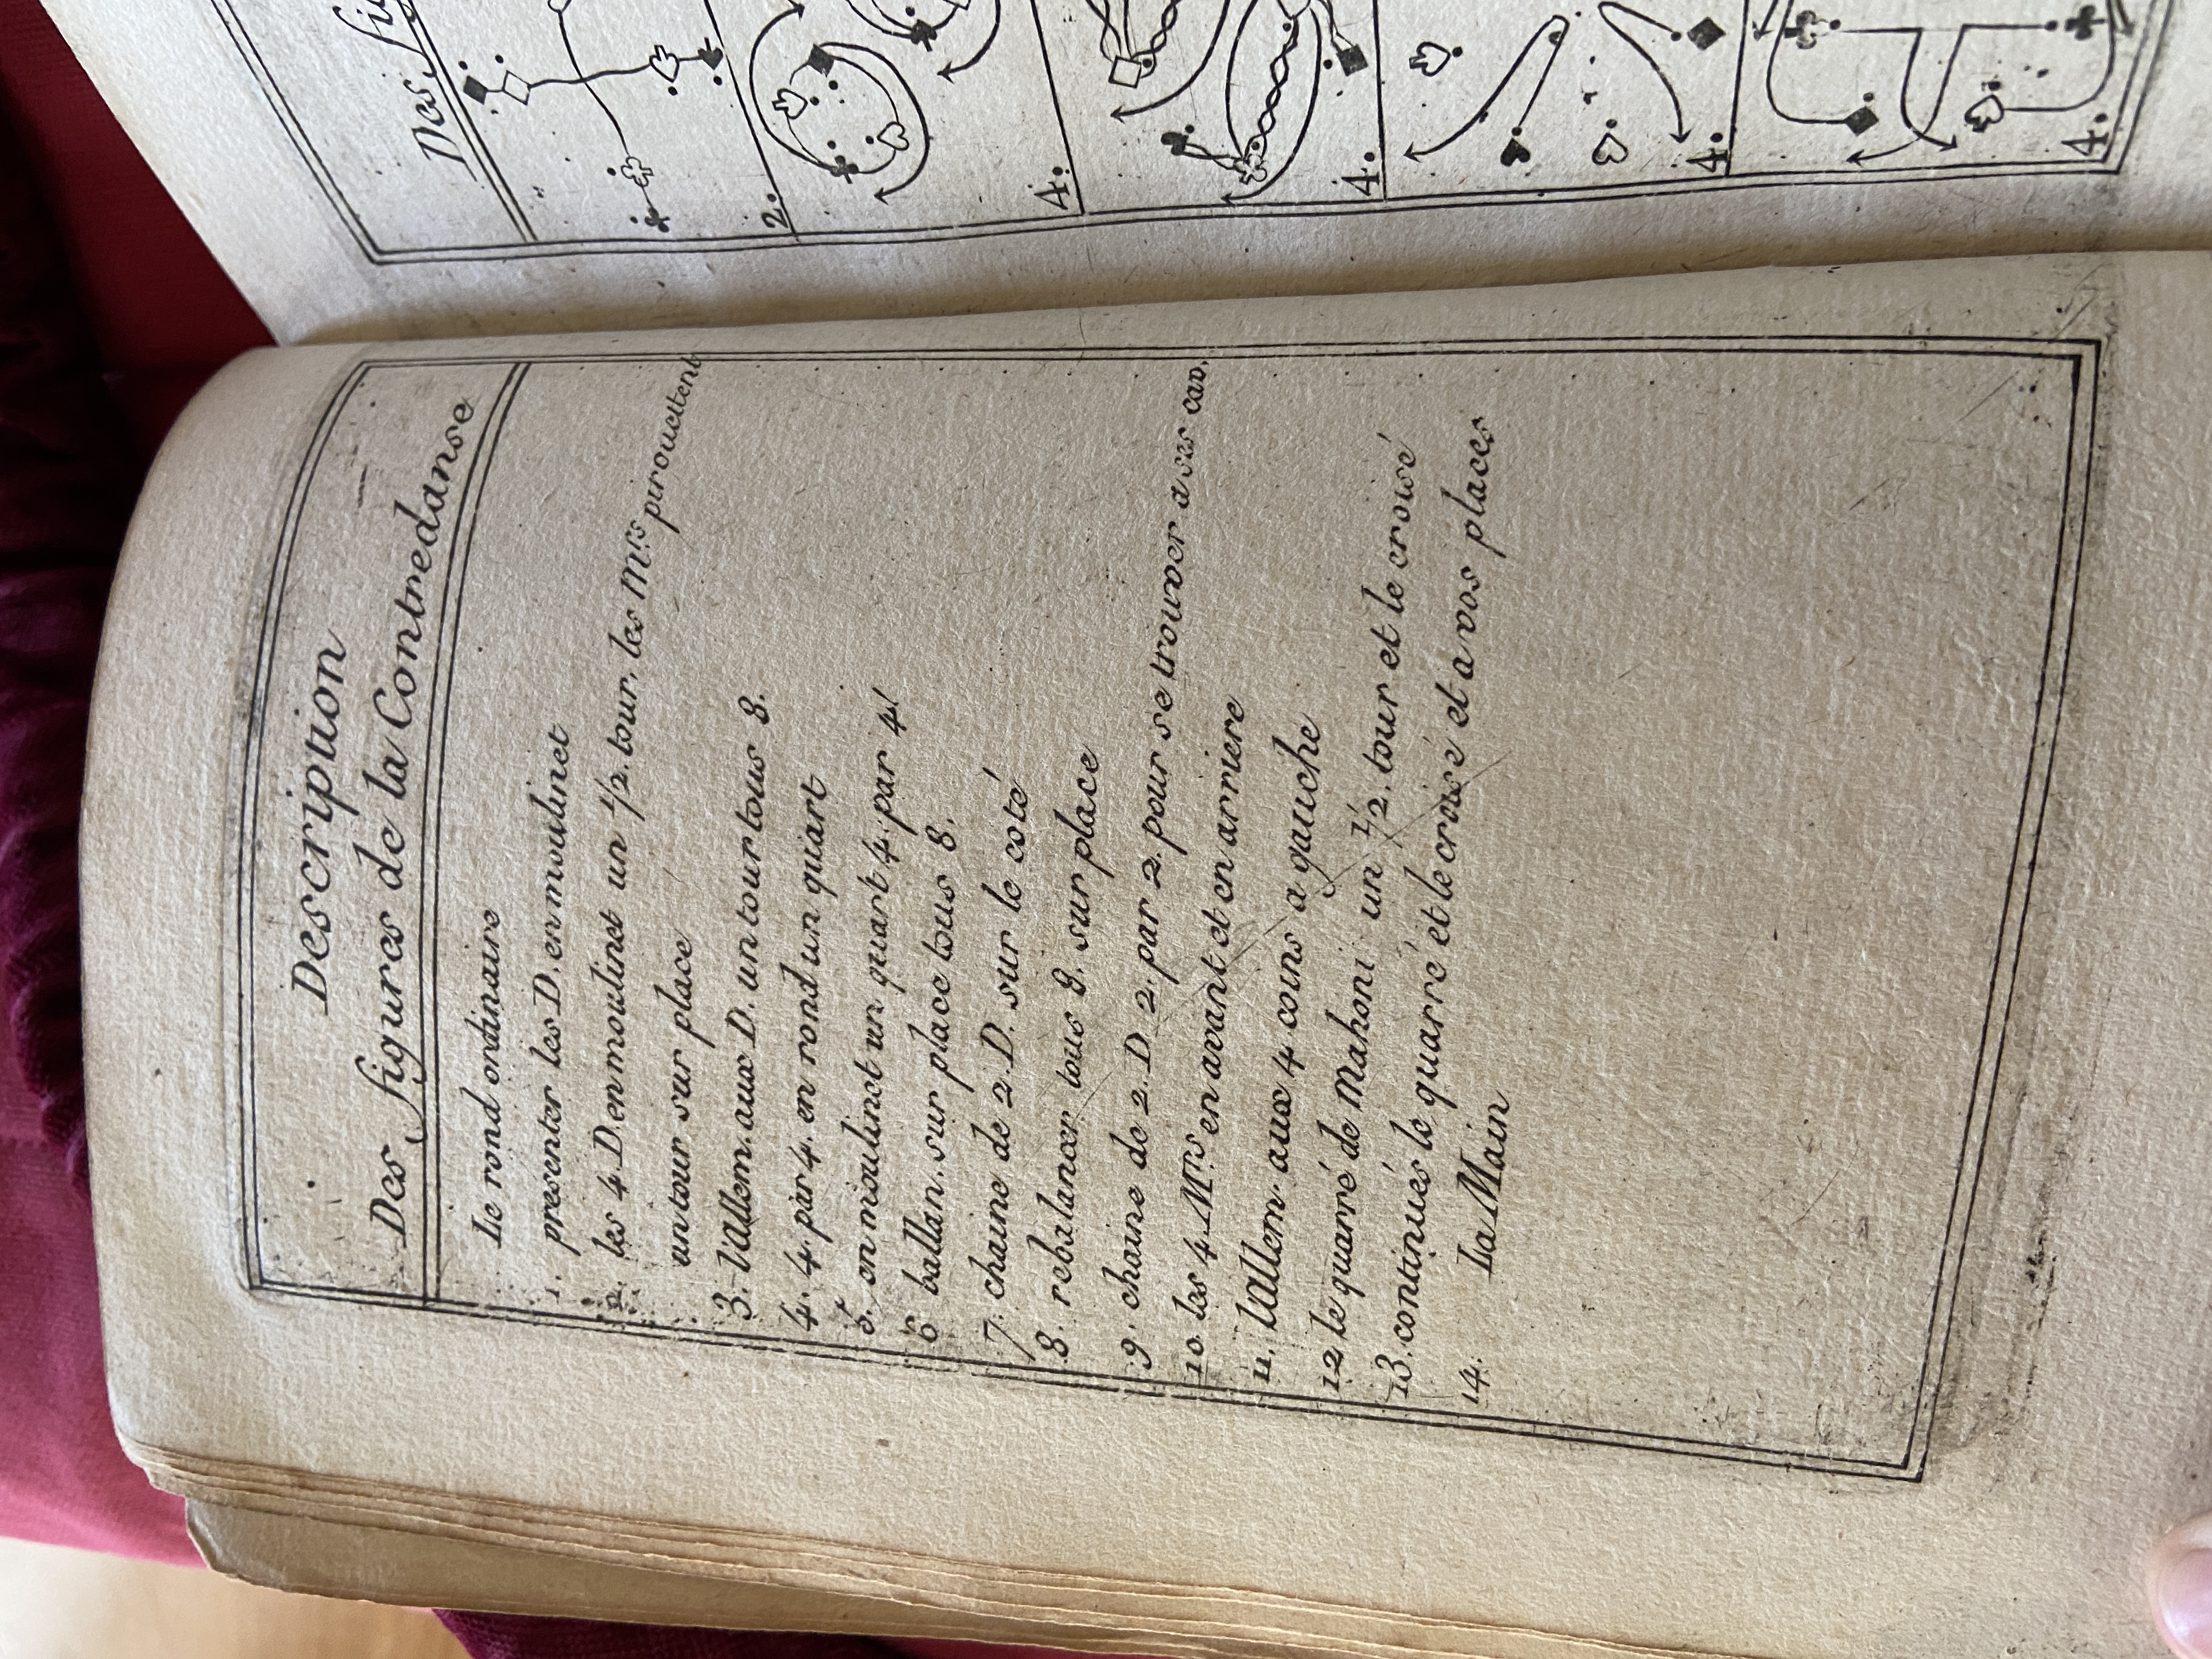 Description
Des figures de la Contredanse
Le rond ordinaire
1. presenter les D. en moulinet
2. les 4 D en moulinet un 1/2. tour, les Mrs pirouettent
un tour sur place
3. l'Allem. aux D. un tour tous 8.
4. 4. par 4. en rond un quart
5. en moulinet un quart 4. par 4
6 ballan. sur place tous 8.
7. chaine de 2. D. sur le coté
8. rebalancer tous 8. sur place
9. chaine de 2. D. 2. par 2. pour se trouver a ses cav.
10. les 4 Mrs en avant et en arriere
11. l'Allem. aux 4 coins a gauche
12 le quarré de Mahoni un 1/2. tour et le croisé
13. continués le quarré et le croisé et a vos places
14. La Main
Des
2.
4.
4.
4.
4.